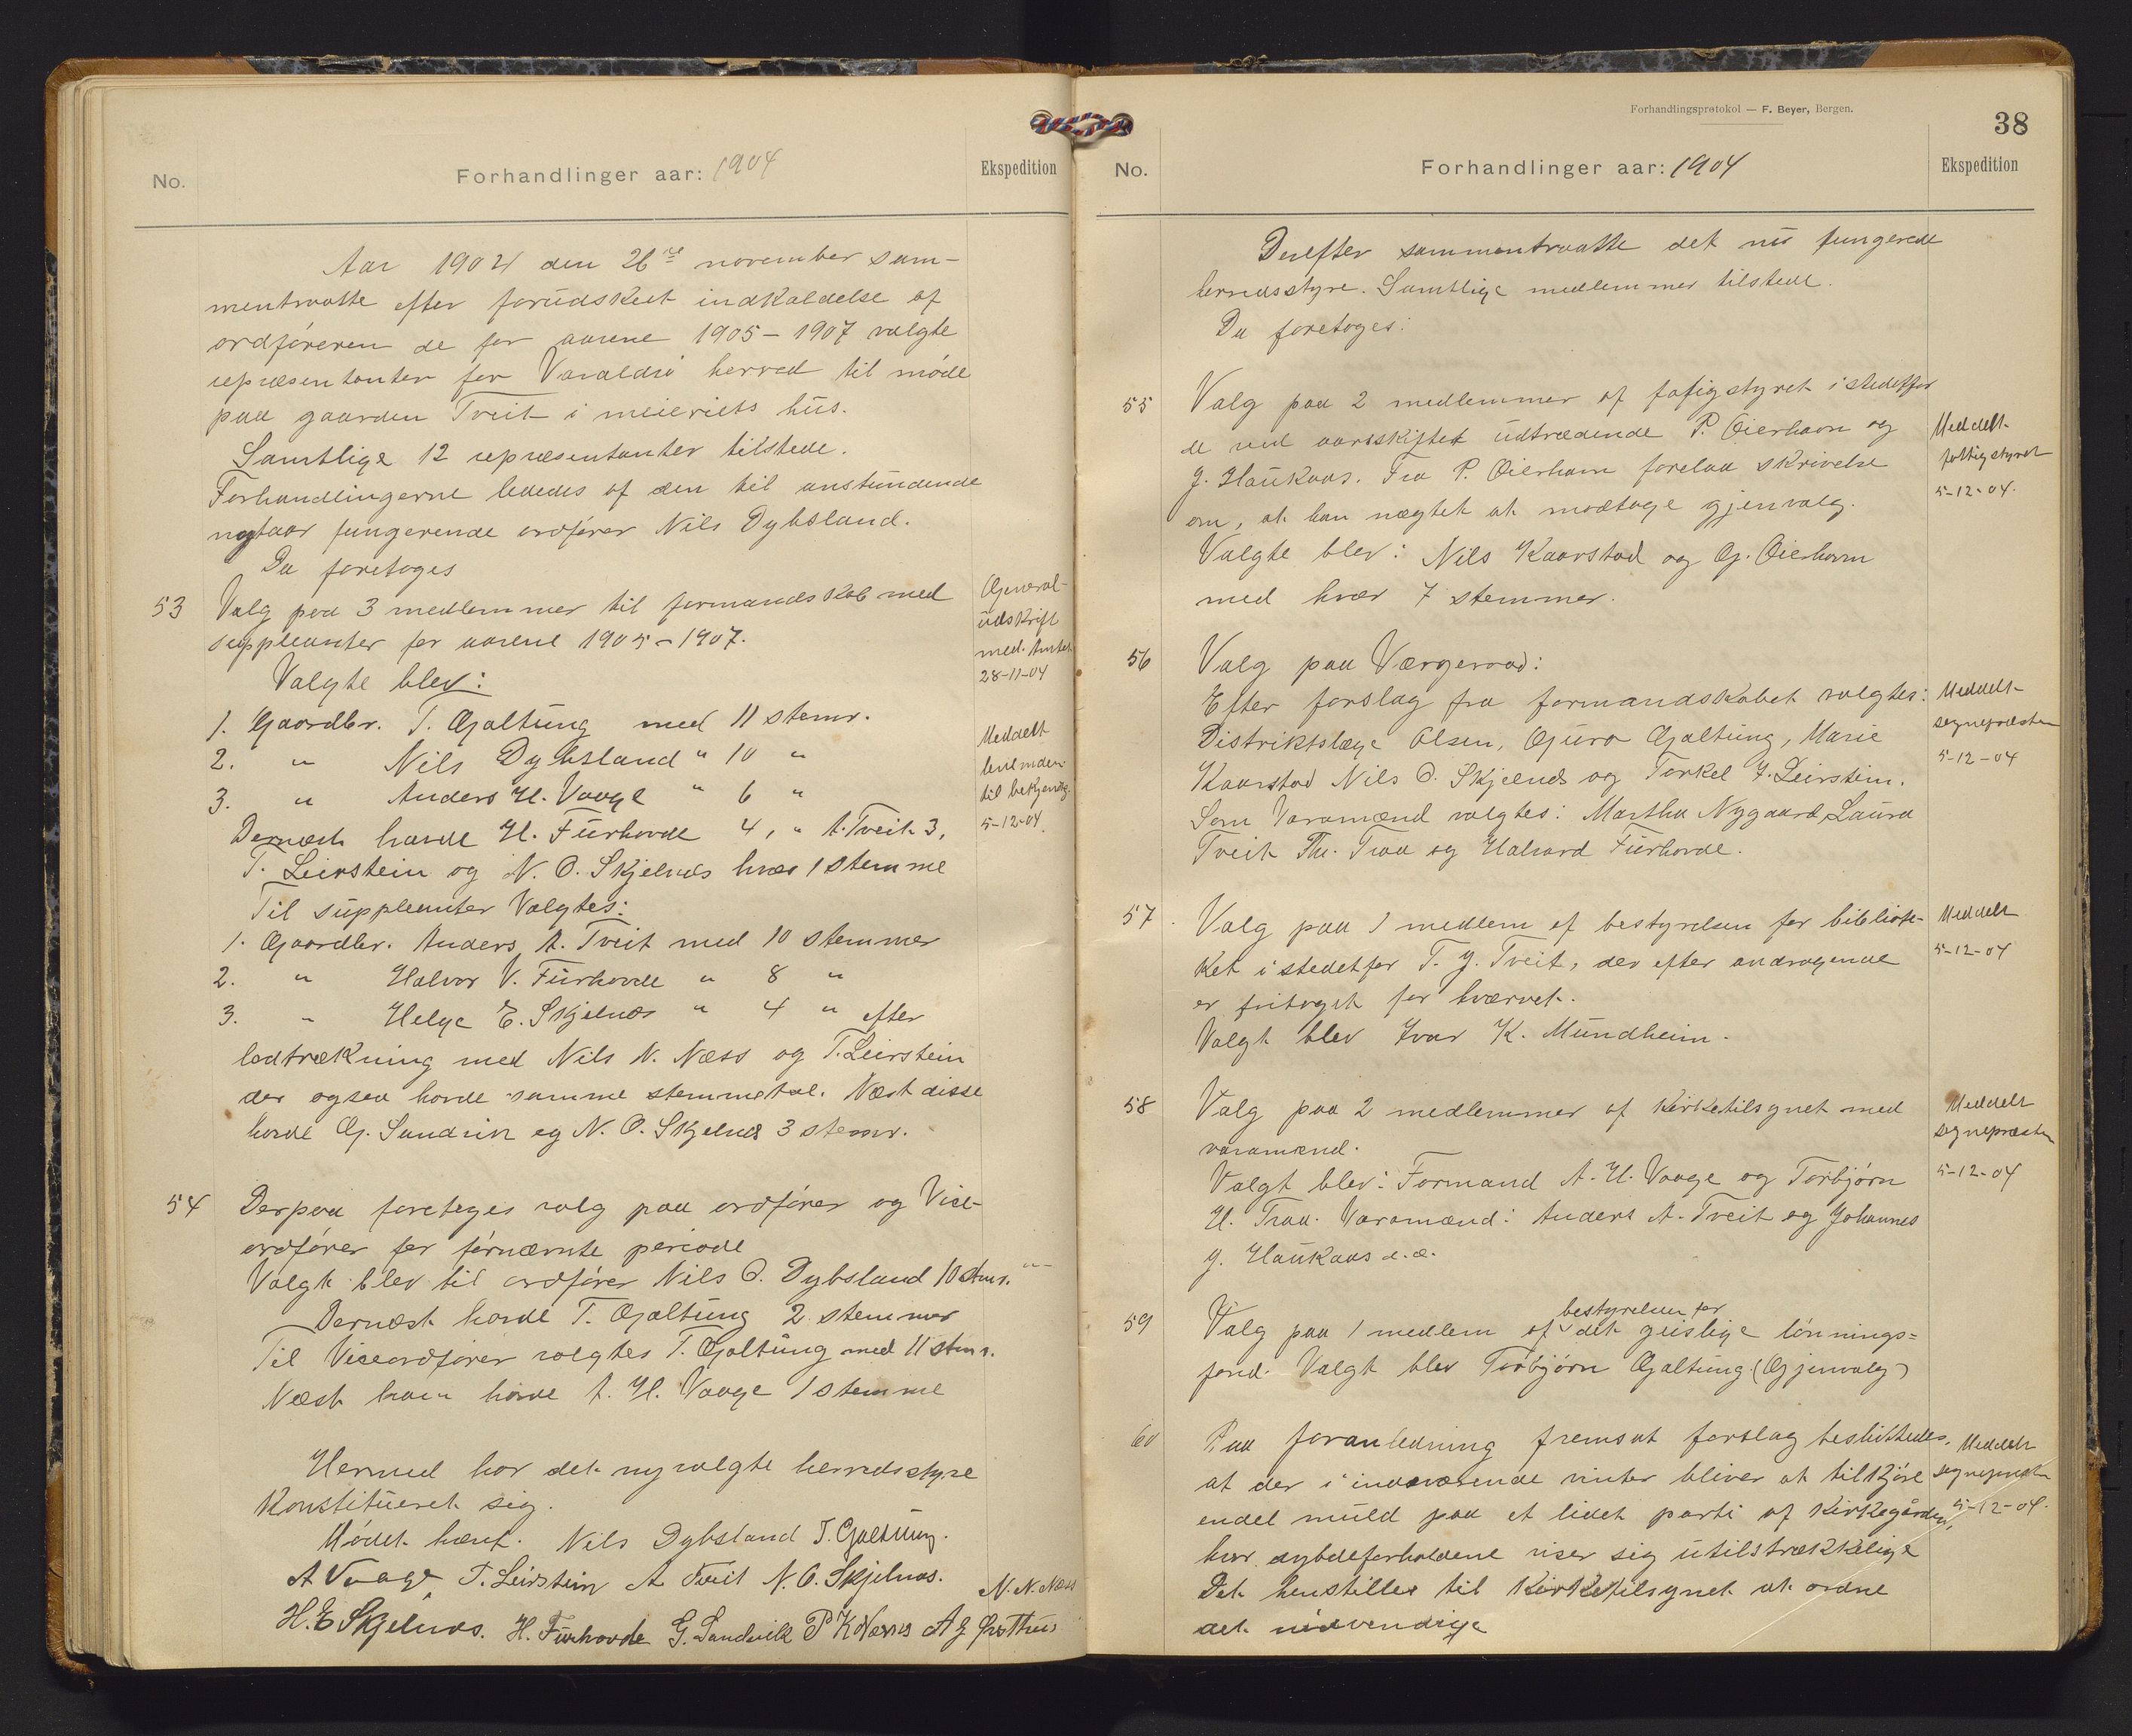 No.
Forhandlinger aar: 1904
Ekspedition
Aar 1904 den 26de november sam-
mentraatte efter forudskeet indkaldelse af
ordføreren de for aarene 1905-1907 valgte
repræsentanter for Varaldsø herred til møde
paa gaarden Tveit i meieriets hus.
Samtlige 12 repræsentanter tilstede.
Forhandlingerne lededes af den til anstundende
nytaar fungerende ordfører Nils Dybsland.
Da foretoges
53 Valg paa 3 medlemmer til formandsskab med
suppleanter for aarene 1905-1907.
General-
udskrift
med. Amtet
28-11-04
Valgte blev:
1. Gaardbr. T. Gjaltung med 11 stemr.
2. " Nils Dybsland " 10 "
3. " Anders H. Vaage " 6 "
Meddelt
lensmden
til bekjendtg.
5-12-04.
Dernæst havde H. Furhovde 4, " A. Tveit 3,
T. Leirstein og N. O. Skjelnæs hver 1 stemme
Til suppleanter Valgtes:
1. Gaardbr. Anders A. Tveit med 10 stemmer
2. " Halvor V. Furhovde " 8 "
3. " Helge E. Skjelnæs " 4 " efter
lodtrækning med Nils N. Næss og T. Leirstein
der ogsaa havde samme stemmetal. Næst disse
havde G. Sandvik og N. O. Skjelnæs 3 stemr.
54 Derpaa foretoges valg paa ordfører og Vice-
ordfører for førnævnte periode
Valgt blev til ordfører Nils O. Dybsland 10 stmr. "
Dernæst havde T. Gjaltung 2 stemmer
Til Viceordfører valgtes T. Gjaltung med 11 stmr.
Næst ham havde A. H. Vaage 1 stemme
Hermed har det nyvalgte herredsstyre
Konstitueret sig.
Mødet hævt. Nils Dybsland T. Gjaltung.
A Vaage T. Leirstein A Tveit N. O. Skjelnæs. N. N. Næss
H. E Skjelnæs. H. Furhovde G. Sandvik P K Næss A G
Forhandlingsprotokol — F. Beyer, Bergen.
38
No.
Forhandlinger aar: 1904
Ekspedition
Derefter sammentraatte det nu fungerede
herredsstyre. Samtlige medlemmer tilstede.
Da foretoges:
55 Valg paa 2 medlemmer af fatigstyret istedetfor
de ved aarsskiftet udtrædende P. Øierhavn og
J. Haukaas. Fra P. Øierhavn forelaa skrivelse
om, at han nægtet at modtage gjenvalg.
Valgte blev: Nils Kaarstad og G. Øierhavn
med hver 7 stemmer.
Meddelt
fattigstyret
5-12-04.
56 Valg paa Værgeraad:
Efter forslag fra formandskabet valgtes:
Distriktslæge Olsen, Guro Gjaltung, Marie
Kaarstad Nils O. Skjelnæs og Torkel J. Leirstein.
Som Varamænd valgtes: Martha Nygaard, Laura
Tveit Th. Traa og Halvard Furhovde.
Meddelt
sognepræsten
5-12-04
57. Valg paa 1 medlem af bestyrelsen for bibliote-
ket istedetfor T. J. Tveit, der efter andragende
er fritaget for hvervet.
Valgt blev Ivar K. Mundheim.
Meddelt
5-12-04
58 Valg paa 2 medlemmer af Kirketilsynet med
varamænd.
Valgt blev: Formand A. H. Vaage og Torbjørn
H. Traa. Varamænd: Anders A. Tveit og Johannes
J. Haukaas d.æ.
Meddelt
sognepræsten
5-12-04
59 Valg paa 1 medlem af bestyrelsen for det geislige lønnings=
fond. Valgt blev Torbjørn Gjaltung (Gjenvalg)
60 Paa foranledning fremsat forslag besluttedes,
at der i indeværende vinter bliver at tilkjøre
endel muld paa et lidet parti af Kirkegården,
hvor dybdeforholdene viser sig utilstrækkelige
Det henstilles til Kirketilsynet at ordne
det nødvendige
Meddelt
sognepræsten
5-12-04.